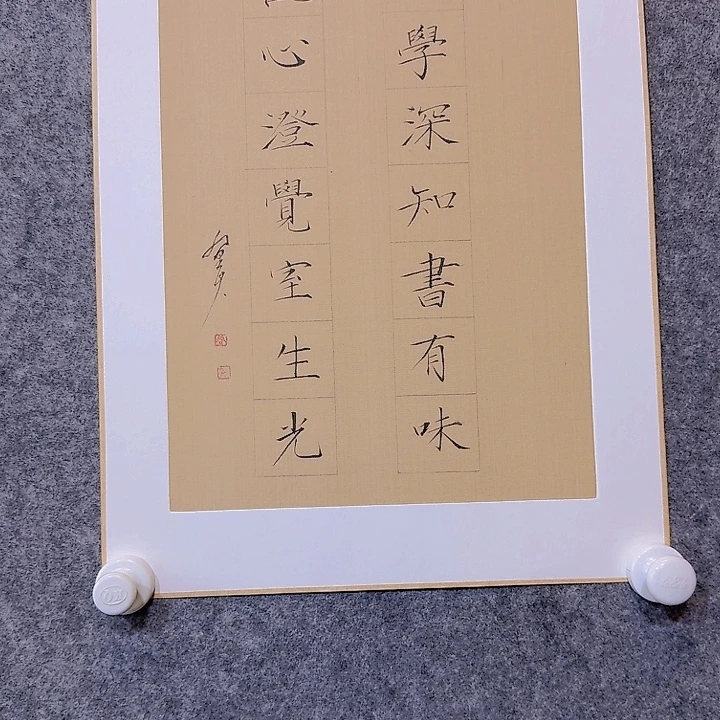 學深知書有味
心澄覺室生光